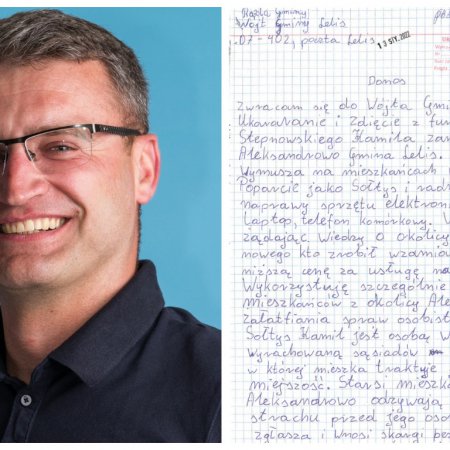 Rada Gminy
Wójt Gminy Lelis
07-402, poczta Lelis
13 STY. 2022
Donos
Zwracam się do Wójta Gmi
Ukaranie i Zdjęcie z fun
Stepnowskiego Kamila zam
Aleksandrowo Gmina Lelis.
Wymusza na mieszkańcach
Poparcie jako Sołtys i radn
naprawy sprzętu elektroni
Laptop, telefon komórkowy. W
żądając. Wiedzy o okolicy
nowego kto zrobił wzamia
niższą cenę za usługę na
Wykorzystuję szczególnie
mieszkańców z okolicy Ale
załatfiania spraw osobist
Sołtys Kamil jest osobą w
wyrachowaną sąsiadów
w której mieszka traktuje
miejszość. Starsi mieszka
Aleksandrowo odzywają
strachu przed jego oso
zgłasza i wnosi skargi bez